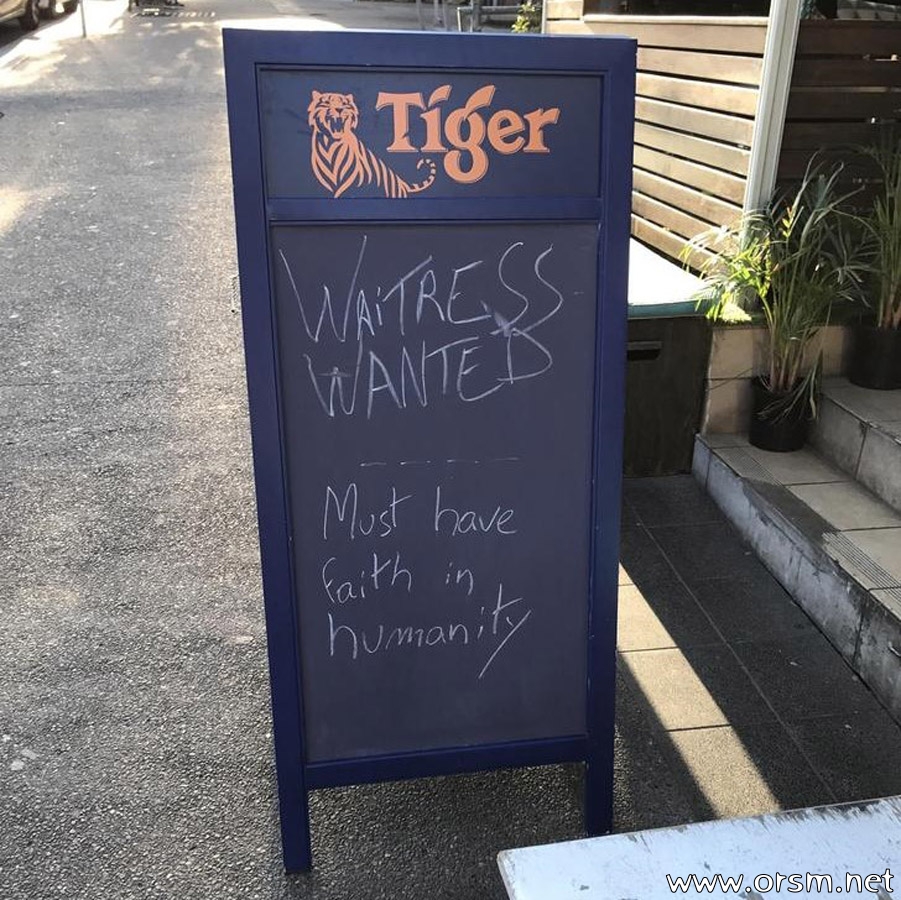 Tiger
WAiTRESS
WANTED
Must have
faith in
humanity
www.orsm.net